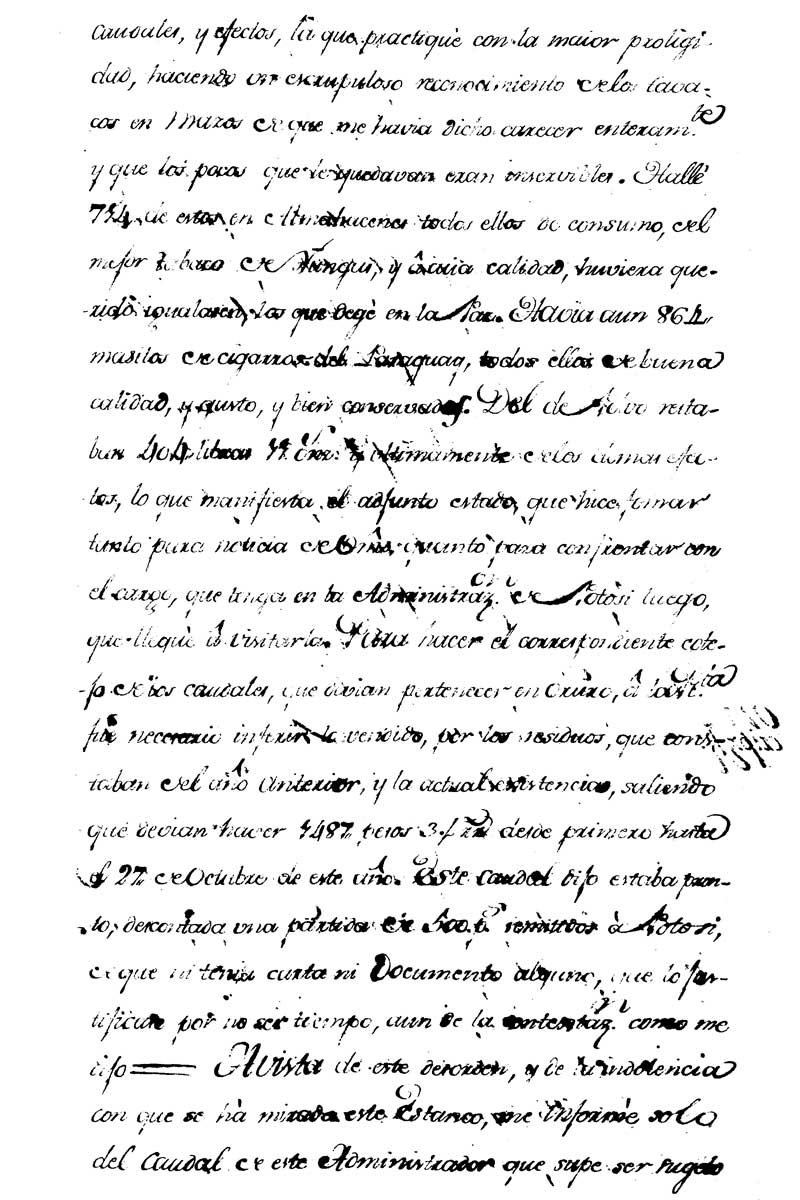 caudales, y efectos, la que practiquè con la maior proligi-
dad, haciendo un escrupuloso reconocimiento de los tava-
cos en mazos de que me havia dicho carecer enteram.te
y que los pocos que le quedavan eran inservibles. Hallè
734 de estos en Almahacenes todos ellos de consumo, del
mejor tabaco de, y à cuia calidad, huviera que-
rido igualasen, los que degè en la Paz. Havia aun 864
masitos de cigarros del Paraguay, todos ellos de buena
calidad, y gusto, y bien conservados. Del de Polvo resta-
ban 404 libras onz.s y ultimamente de los demas efec-
tos, lo que manifiesta el adjunto estado, que hice formar
tanto para noticia de quanto para confrontar con
el cargo, que tenga en la Administraz.on de Potosi luego,
que lleguè à visitarla. Para hacer el correspondiente cote-
jo de los caudales, que devian pertenecer en Oruro, à la
fuè necesario inferir lo vendido, por los residuos, que cons-
taban del año anterior, y la actual existencia, saliendo
que devian hacer 1487 pesos 3 desde primero hasta
el 27 de Octubre de este año. Este caudal dijo estaba pron-
to, descontada una partida de 500 p.s remitidos à Potosi,
de que ni tenia carta ni Documento alguno, que lo jus-
tificase por no ser tiempo, aun de la contestaz.n como me
dijo == A vista de este desorden, y de la indolencia
con que se hà mirado este Estanco, me informè solo
del Caudal de este Administrador que supe ser sugeto